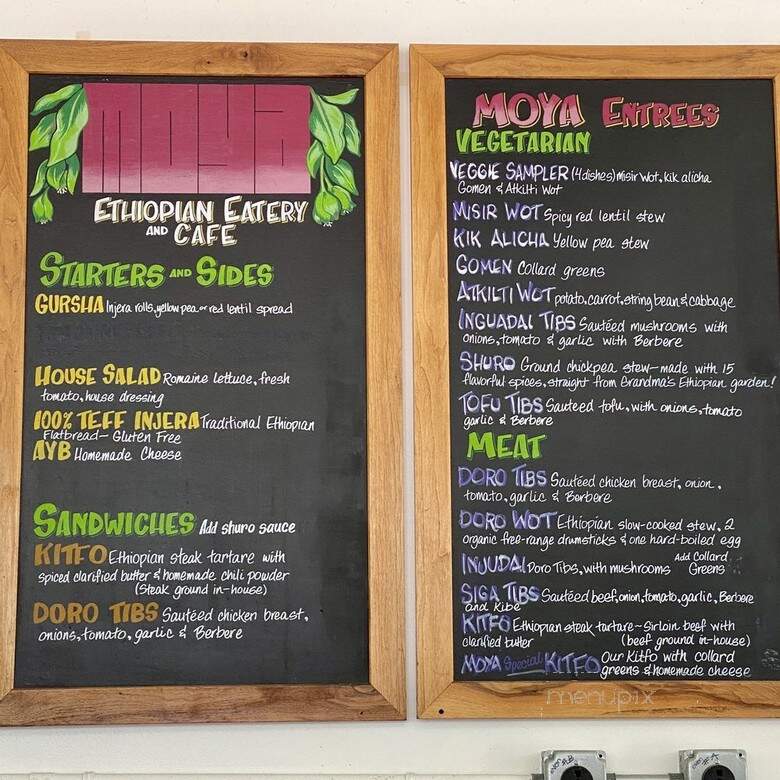 moya
ETHIOPIAN EATERY
AND CAFE
STARTERS AND SIDES
GURSHA Injera rolls, yellow pea or red lentil spread
HOUSE SALAD Romaine lettuce, fresh
tomato, house dressing
100% TEFF INJERA Traditional Ethiopian
Flatbread- Gluten Free
AYB Homemade Cheese
SANDWICHES Add shuro sauce
KITFO Ethiopian steak tartare with
spiced clarified butter & homemade chili powder
(Steak ground in-house)
DORO TIBS Sautéed chicken breast,
onions, tomato, garlic & Berbere
MOYA ENTREES
VEGETARIAN
VEGGIE SAMPLER (4 dishes) misir wot, kik alicha
Gomen & Atkilti Wot
MISIR WOT Spicy red lentil stew
KIK ALICHA Yellow pea stew
GOMEN Collard greens
ATKILTI WOT potato, carrot, string bean & cabbage
INGUADAI TIBS Sautéed mushrooms with
onions, tomato & garlic with Berbere
SHURO Ground chickpea stew-made with 15
flavorful spices, straight from Grandma's Ethiopian garden!
TOFU TIBS Sauteed tofu, with onions, tomato
garlic & Berbere
MEAT
DORO TIBS Sautéed chicken breast, onion,
tomato, garlic & Berbere
DORO WOT Ethiopian slow-cooked stew, 2
organic free-range drumsticks & one hard-boiled egg
INJUDAI Doro Tibs, with mushrooms Add Collard
Greens
SIGA TIBS Sautéed beef, onion, tomato, garlic, Berbere
and Kibe
KITFO Ethiopian steak tartare-Sirloin beef with
clarified butter (beef ground in-house)
MOYA Special KITFO Our Kitfo with collard
greens & homemade cheese
menupix